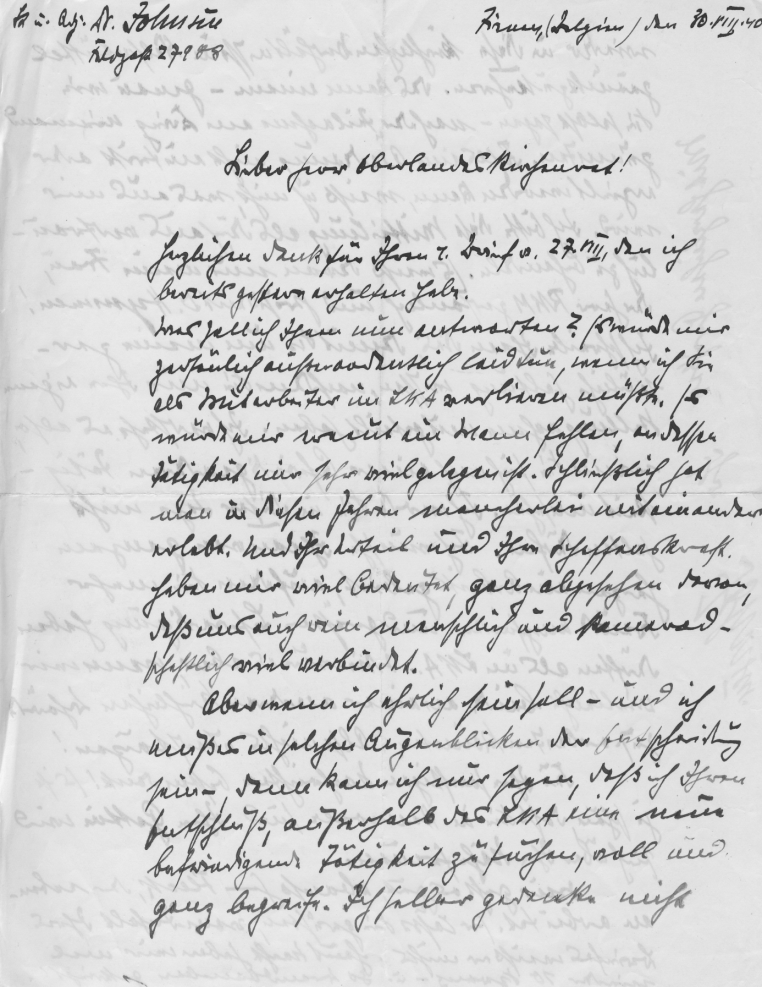 Lt u. Adj. Dr. Johnsen
Feldpost 27988
(Belgien) den 30.VIII.40
Lieber Herr Oberlandeskirchenrat!
Herzlichen Dank für Ihren l. Brief v. 27.VIII, den ich
bereits gestern erhalten habe.
Was soll ich Ihnen nun antworten? Es würde mir
persönlich außerordentlich leid tun, wenn ich Sie
als Mitarbeiter im LKA verlieren müßte. Es
würde mir erneut ein Mann fehlen, an dessen
Tätigkeit mir sehr viel gelegen ist. Schließlich hat
man in diesen Jahren mancherlei miteinander
erlebt. Und Ihr Urteil und Ihre Schaffenskraft
haben mir viel bedeutet, ganz abgesehen davon,
daß uns auch rein menschlich und kamerad-
schaftlich viel verbindet.
Aber wenn ich ehrlich sein soll - und ich
muß es in solchen Augenblicken der Entscheidung
sein -, dann kann ich nur sagen, daß ich Ihren
Entschluß, außerhalb des LKA eine neue
befriedigende Tätigkeit zu suchen, voll und
ganz begreife. Ich selber gedenke nicht